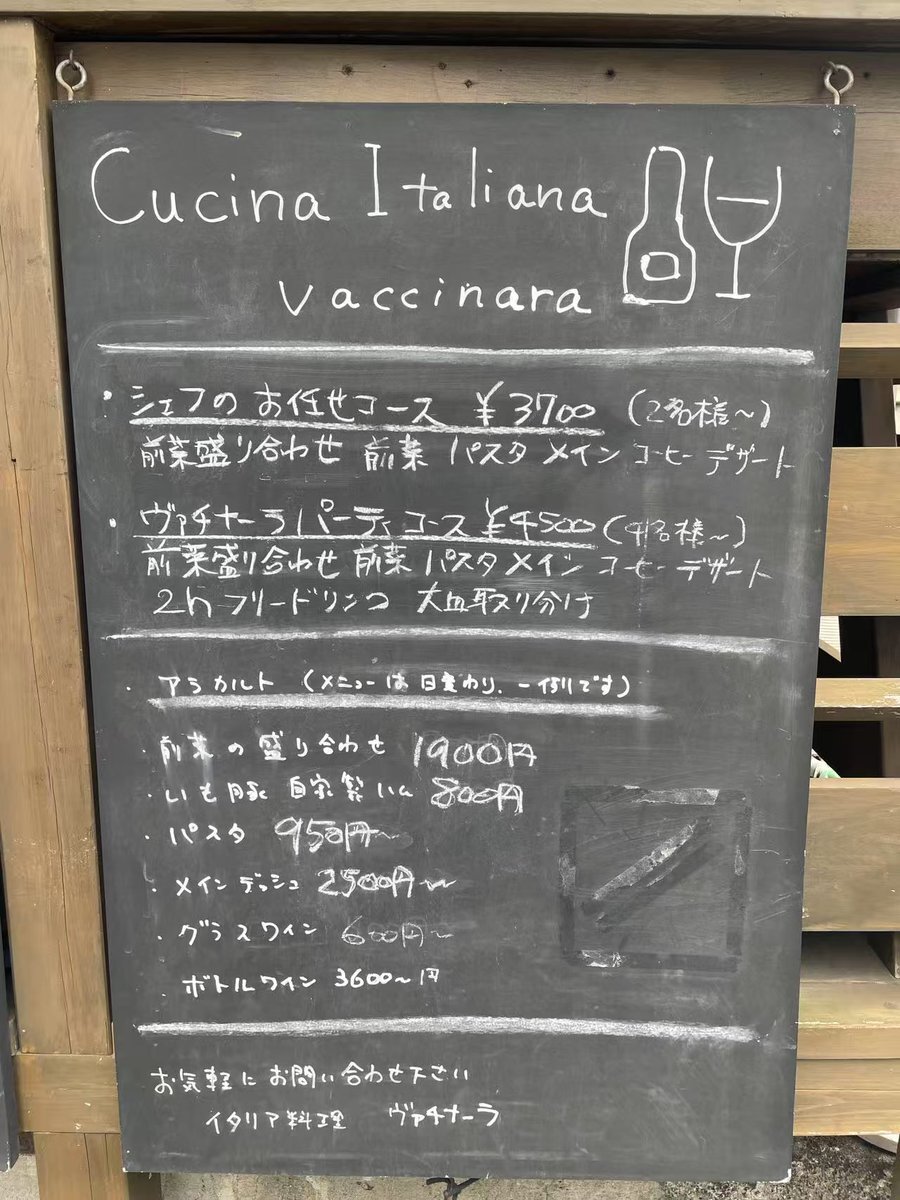 Cucina Italiana
vaccinara
・シェフのお任せコース ¥3700 (2名様～)
前菜盛り合わせ 前菜 パスタ メイン コーヒー デザート
・ヴァチナーラパーティコース ¥4500 (4名様～)
前菜盛り合わせ 前菜 パスタ メイン コーヒー デザート
2hフリードリンコ 大皿取り分け
・アラカルト (メニューは日変わり、一例です)
・前菜の盛り合わせ 1900円
・いも豚 自家製ハム 800円
・パスタ 950円～
・メインデッシュ 2500円～
・グラスワイン 600円～
ボトルワイン 3600～円
お気軽にお問い合わせ下さい
イタリア料理 ヴァチナーラ